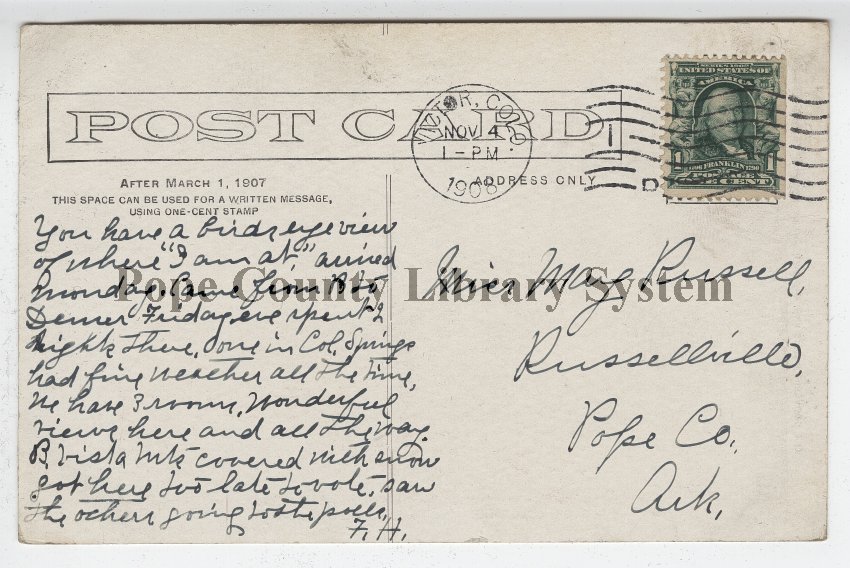 POST CARD
VICTOR, COLO.
NOV 4
1-PM
1908
SERIES 1902
UNITED STATES OF
AMERICA
FRANKLIN
POSTAGE
1 CENT
AFTER MARCH 1, 1907
THIS SPACE CAN BE USED FOR A WRITTEN MESSAGE,
USING ONE-CENT STAMP
ADDRESS ONLY
You have a birds eye view
of where "I am at" arrived
Monday. Came from B to
Denver Friday eve spent 2
nights there, one in Col. Springs
had fine weather all the time,
We have 3 rooms, Wonderful
views here and all the way.
B. Vista Mts covered with snow
got here too late to vote, saw
the others going to the polls,
F. H.
Miss May Russell,
Russellville,
Pope Co.
Ark,
Pope County Library System